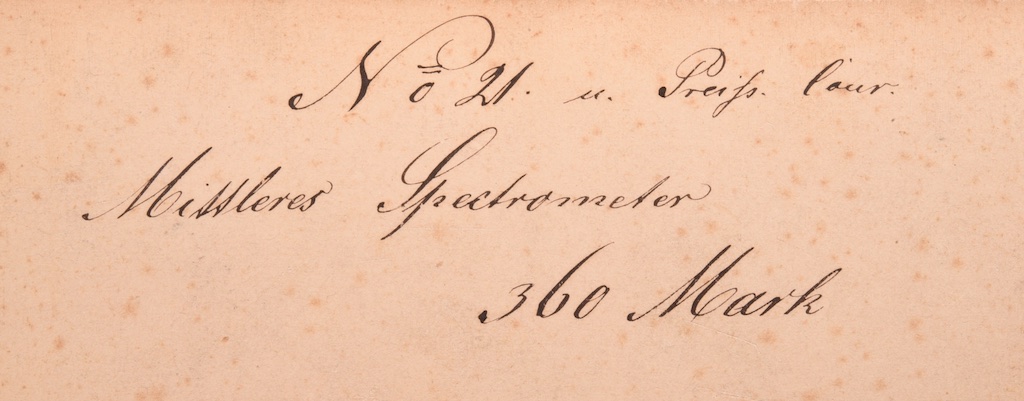 No 21. u. Preiss. Cour.
Mittleres Spectrometer
360 Mark